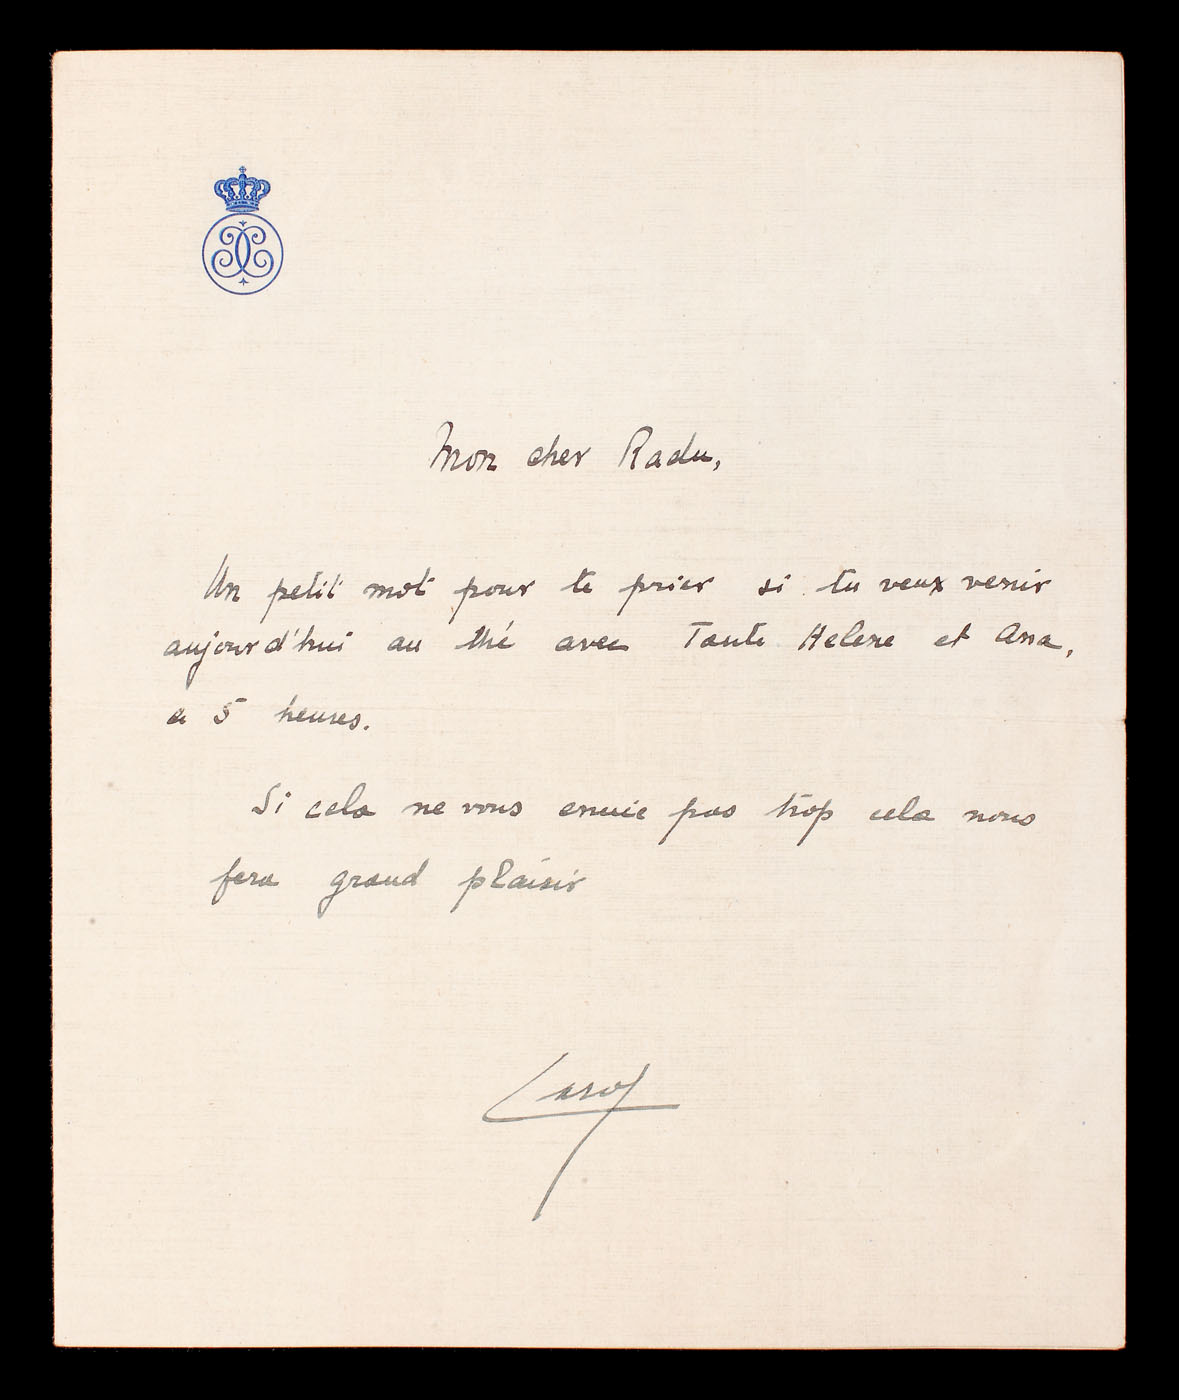 Mon cher Radu,
Un petit mot pour te prier si tu veux venir
aujourd'hui au thé avec Tante Helene et Ana,
a 5 heures.
Si cela ne vous enuie pas trop cela nous
fera grand plaisir
Carol